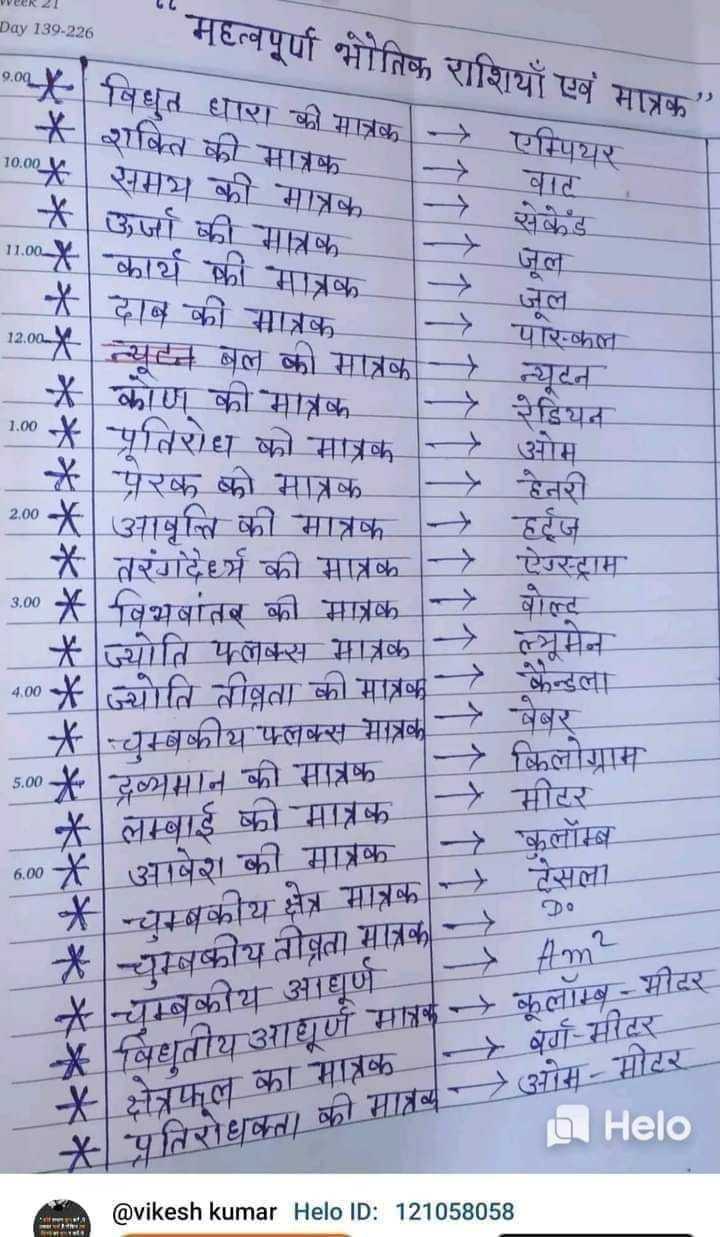 Week 21
Day 139-226
“ महत्वपूर्ण भौतिक राशियाँ एवं मात्रक ”
9.00 * विधुत धारा की मात्रक → एम्पियर
* शक्ति की मात्रक → वाट
10.00 * समय की मात्रक → सेकेंड
* ऊर्जा की मात्रक → जूल
11.00 * कार्य की मात्रक → जूल
* दाब की मात्रक → पास्कल
12.00 * न्यूटन बल की मात्रक → न्यूटन
* कोण की मात्रक → रेडियन
1.00 * प्रतिरोध की मात्रक → ओम
* प्रेरक की मात्रक → हेनरी
2.00 * आवृत्ति की मात्रक → हर्ट्ज
* तरंगदैर्ध्य की मात्रक → ऐंगस्ट्राम
3.00 * विभवांतर की मात्रक → वोल्ट
* ज्योति फ्लक्स मात्रक → ल्यूमेन
4.00 * ज्योति तीव्रता की मात्रक → कैन्डला
* चुम्बकीय फ्लक्स मात्रक → वेबर
5.00 * द्रव्यमान की मात्रक → किलोग्राम
* लम्बाई की मात्रक → मीटर
6.00 * आवेश की मात्रक → कुलॉम्ब
* चुम्बकीय क्षेत्र मात्रक → टेसला
* चुम्बकीय तीव्रता मात्रक → Do
* चुम्बकीय आधूर्ण → Am²
* विधुतीय आधूर्ण मात्रक → कूलॉम्ब - मीटर
* क्षेत्रफल का मात्रक → वर्ग - मीटर
* प्रतिरोधकता की मात्रक → ओम - मीटर
Helo
@vikesh kumar Helo ID: 121058058